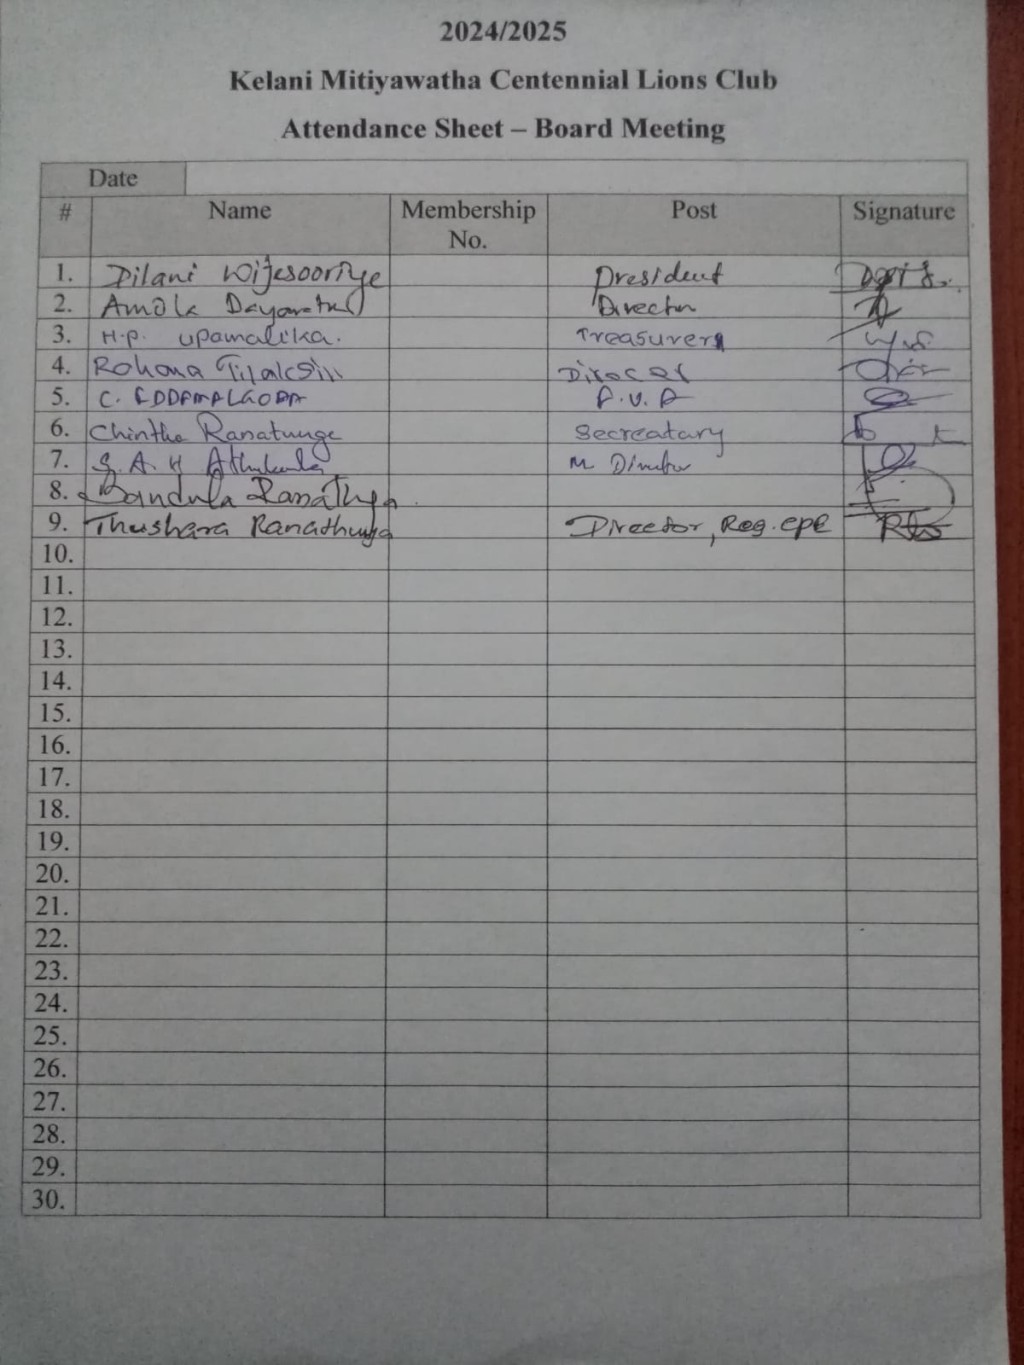 2024/2025
Kelani Mitiyawatha Centennial Lions Club
Attendance Sheet – Board Meeting
Date
# Name Membership No. Post Signature
1. Dilani Wijesooriye President
2. Amola Director
3. H.P. upamalika. Treasurer
4. Rohana
5. C.
6. Chintha Ranatunge Secreatary
7. S. A. H M Director
8. Bandula
9. Thushara Ranathunga Director, Reg.
10.
11.
12.
13.
14.
15.
16.
17.
18.
19.
20.
21.
22.
23.
24.
25.
26.
27.
28.
29.
30.